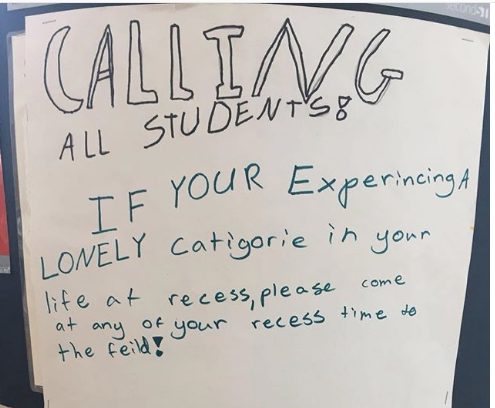 CALLING
ALL STUDENTS!
IF YOUR Experincing A
LONELY Catigorie in your
life at recess, please come
at any of your recess time to
the feild!